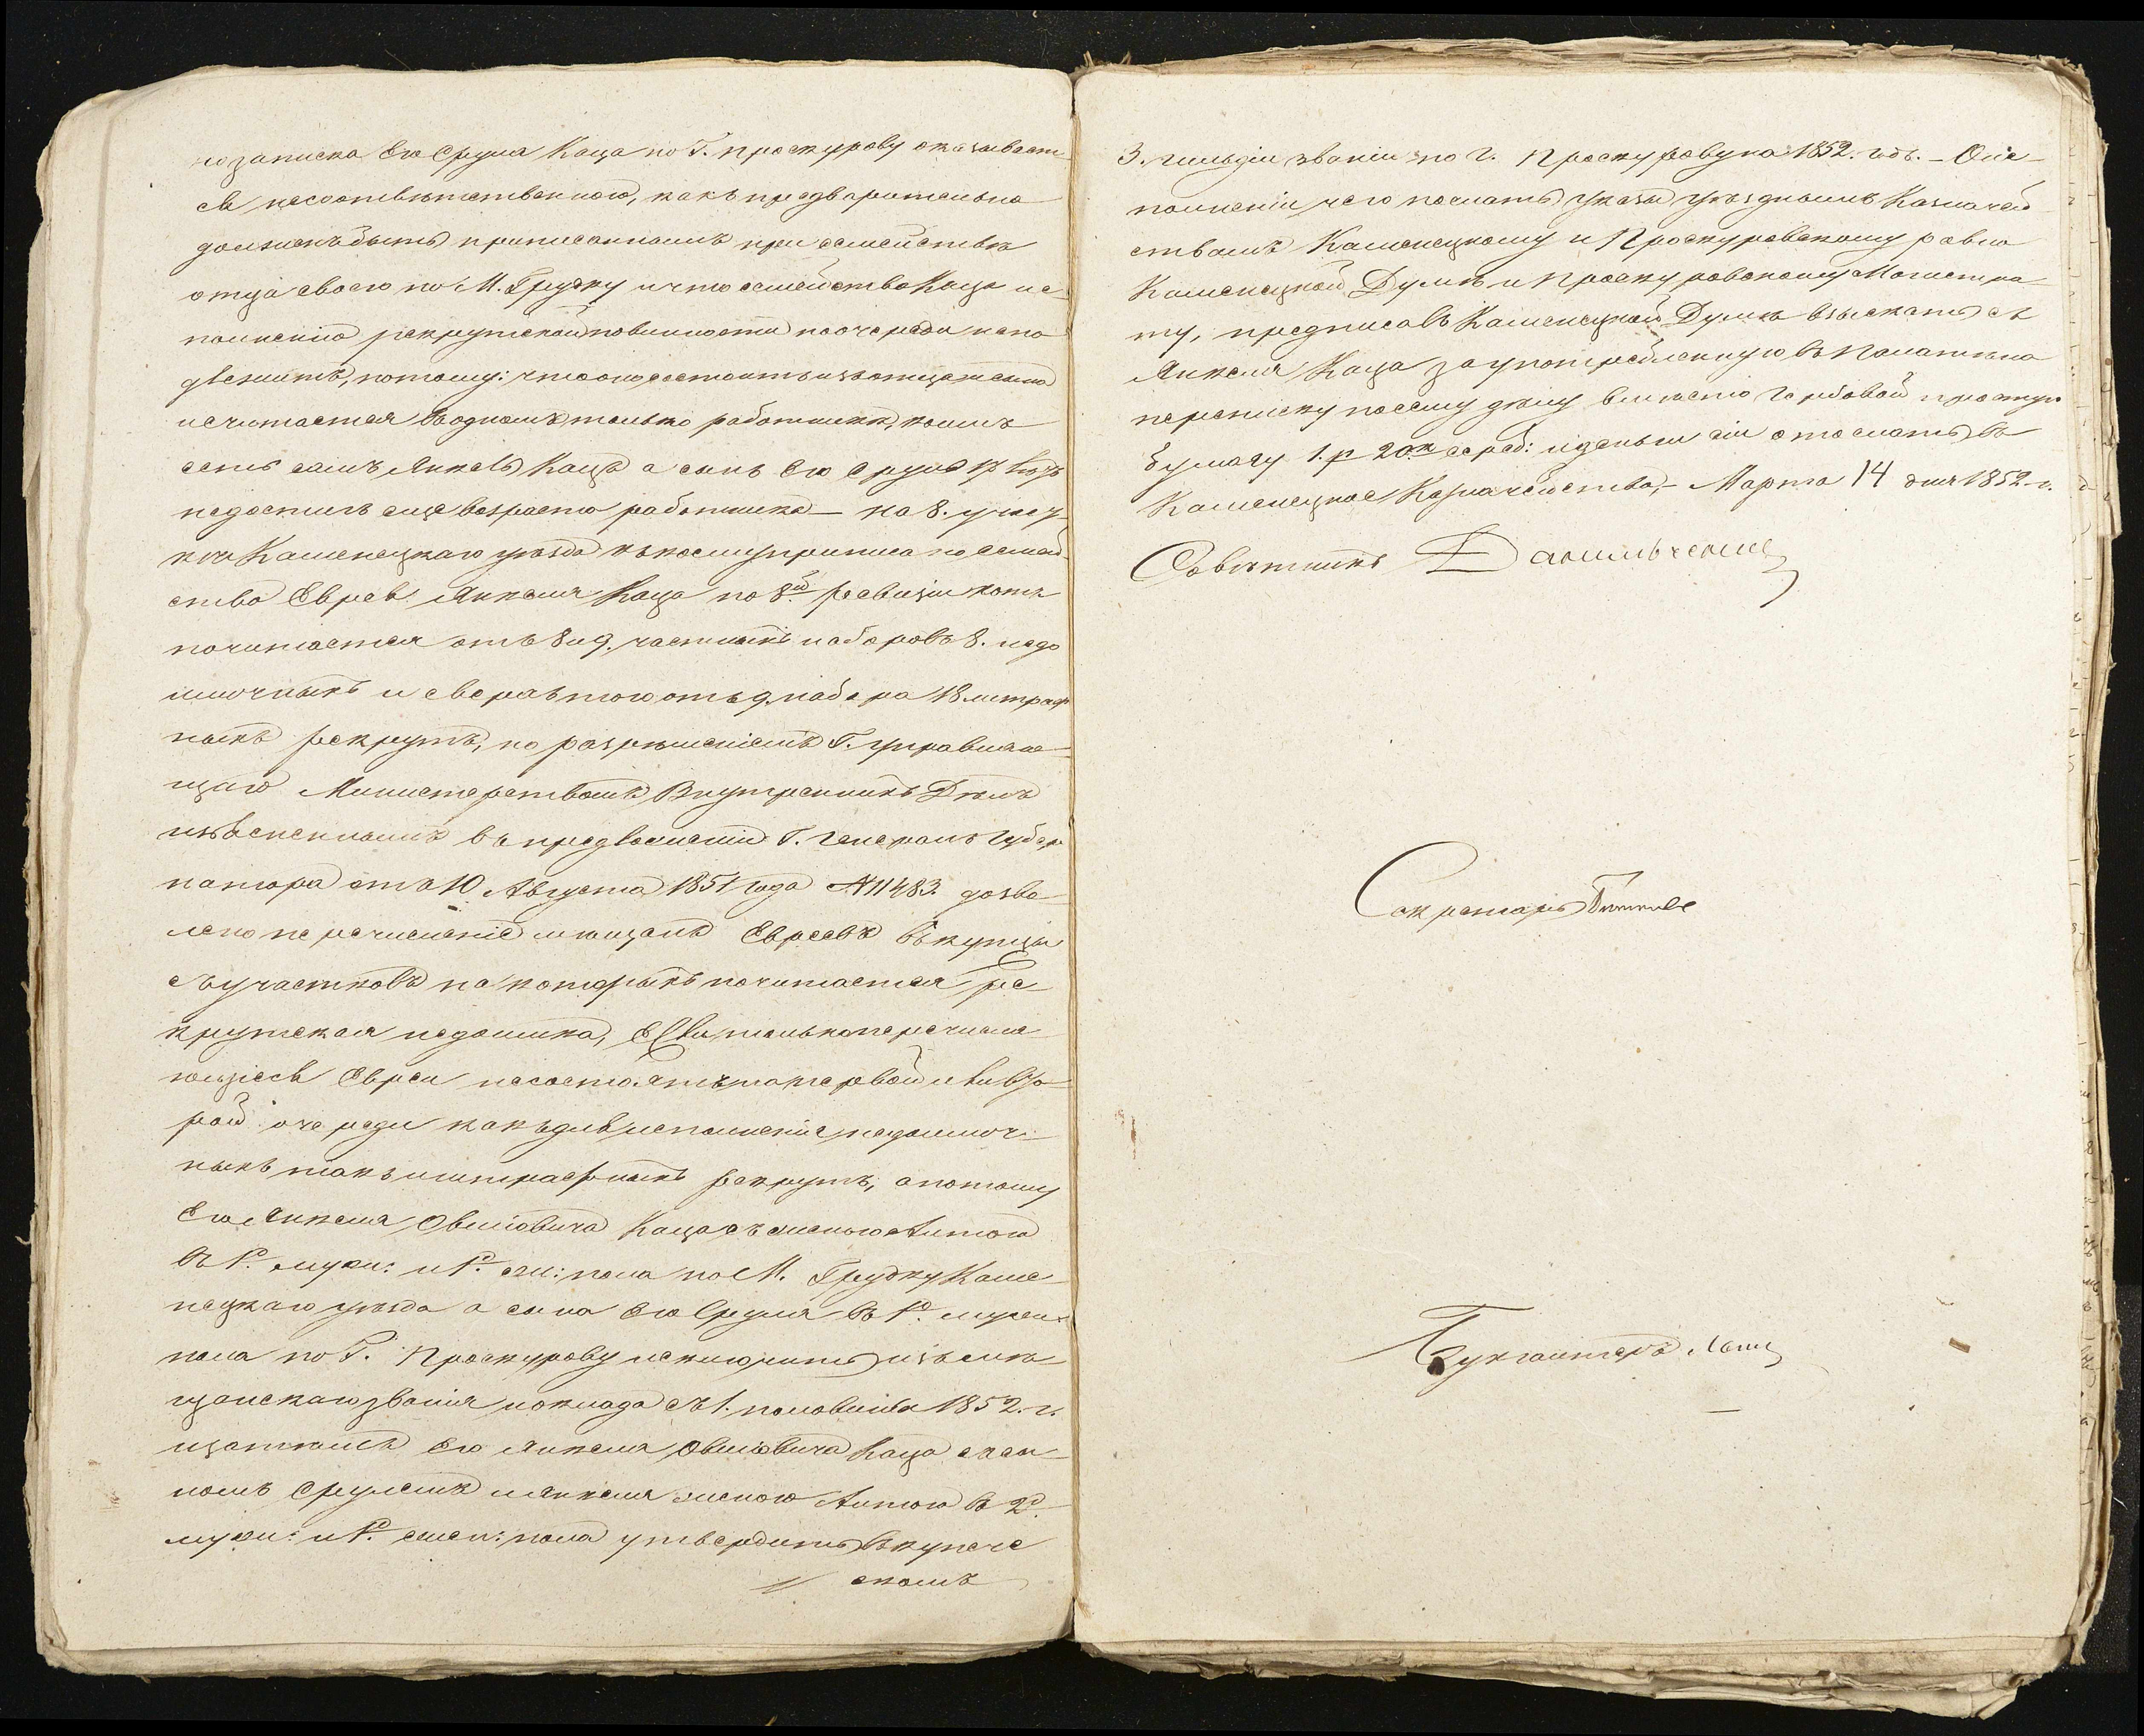 ю записка его Сруля Каца по Г. Проскурову оказывает-
ся несоответственною, какъ предварительно
долженъ быть приписаннымъ при семействѣ
отца своего по М. Грудку и что семейство Каца ис-
полненію рекрутской повинности по очереди непо
длежитъ, потому: что оно состоитъ изъ отца и сына
и считается въ одномъ только работникѣ, коимъ
есть самъ Янкель Кацъ а сынъ его Сруль
недостигъ еще возраста работника — на 8. участ-
кѣ Каменецкаго уѣзда къ коему приписано семей-
ство Еврея Янкеля Каца по 8й ревизіи хотя
почитается отъ 8 и 9. частныхъ наборовъ 8. недо
имочныхъ и сверхъ того отъ 9. набора 18 штраф
ныхъ рекрутъ, но разрѣшеніемъ Г. Управляю-
щаго Министерствомъ Внутреннихъ Дѣлъ
изъясненнымъ въ предложеніи Г. Генералъ Губер
натора отъ 10 Августа 1851 года №11483. дозво-
лено перечисленіе мѣщанъ Евреевъ въ купцы
съ участковъ на которыхъ почитается ре-
крутская недоимка, если только перечисля-
ющіесь Евреи несостоятъ на первой или вто-
рой очереди какъ для исполненія недоимоч-
ныхъ такъ и штрафныхъ рекрутъ, а потому
его Янкеля Овшіовича Каца съ женою
въ 1й муж: и 1й жен: пола по М. Грудку Каме-
нецкаго уѣзда а сына его Сруля въ 1й. муж:
пола по Г. Проскурову исключить изъ мѣ-
щанскаго званія и оклада съ 1. половины 1852. г.
и зачтимъ его Янкеля Овшіовича Каца съ сы-
номъ Срулемъ и Янкеля женою въ 2й.
муж: и 1й. жен: пола утвердить въ купече
скомъ
3. гильдіи званіи по г. Проскурову на 1852. годъ. — О ис-
полненіи чего послать указы уѣзднымъ Казначей
ствамъ Каменецкому и Проскуровскому равно
Каменецкой Думѣ и Проскуровскому Магистра-
ту, предписавъ Каменецкой Думѣ взыскать съ
Янкеля Каца за употребленную въ Палатѣ на
переписку по сему дѣлу вмѣсто гербовой простую
бумагу 1. р 20 к сереб: и деньги сіи отослать въ
Каменецкое Казначейство, — Марта 14 дня 1852. г.
Совѣтникъ
Секретарь
Бухгалтеръ